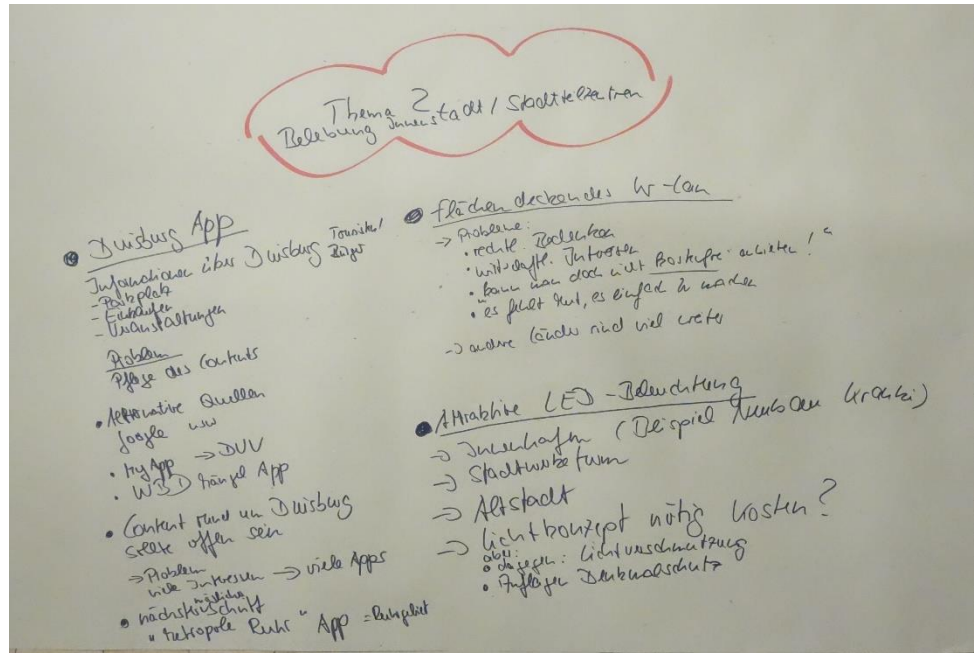 Thema 2
Belebung Innenstadt / Stadtteilzentren
Duisburg App
Informationen über Duisburg Touristen/
Bürger
- Parkplatz
- Einkaufen
- Veranstaltungen
Problem
Pflege des Contents
• Alternative Quellen
google
• MyApp → DVV
• WBD Mängel App
• Content rund um Duisburg
sollte offen sein
→ Problem
viele Interessen → viele Apps
• nächster Schritt
"Metropole Ruhr" App = Ruhrgebiet
flächendeckendes W-Lan
→ Probleme:
• rechtl. Bedenken
• wirtschaftl. Interessen
• "kann man doch nicht kostenfrei anbieten!"
• es fehlt Mut, es einfach zu machen
→ andere Länder sind viel weiter
Attraktive LED-Beleuchtung
→ Innenhafen (Beispiel
→ Stadtwerketurm
→ Altstadt
→ Lichtkonzept nötig Kosten?
aber:
• dagegen: Lichtverschmutzung
• Auflagen Denkmalschutz